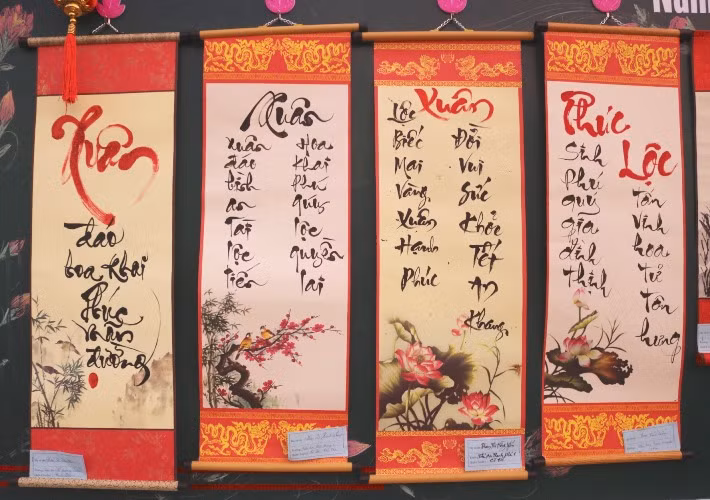 Năm
Xuân
đáo
hoa khai
Phúc
mãn
đường
Xuân
xuân
đáo
bình
an
Tài
lộc
tiến
Hoa
khai
Phú
quý
lộc
quyền
lai
Xuân
Lộc
Biếc
Mai
Vàng,
Xuân
Hạnh
Phúc
Đời
Vui
Sức
Khỏe
Tết
An
Khang,
Phúc
Sinh
Phú
quý
gia
đình
thịnh
Lộc
tôn
Vinh
hoa
tử
tôn
hưng